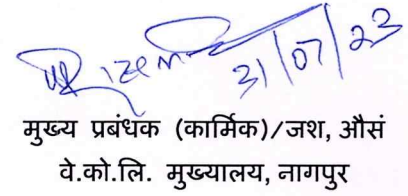 31/07/23
मुख्य प्रबंधक (कार्मिक)/जश, औसं
वे.को.लि. मुख्यालय, नागपुर